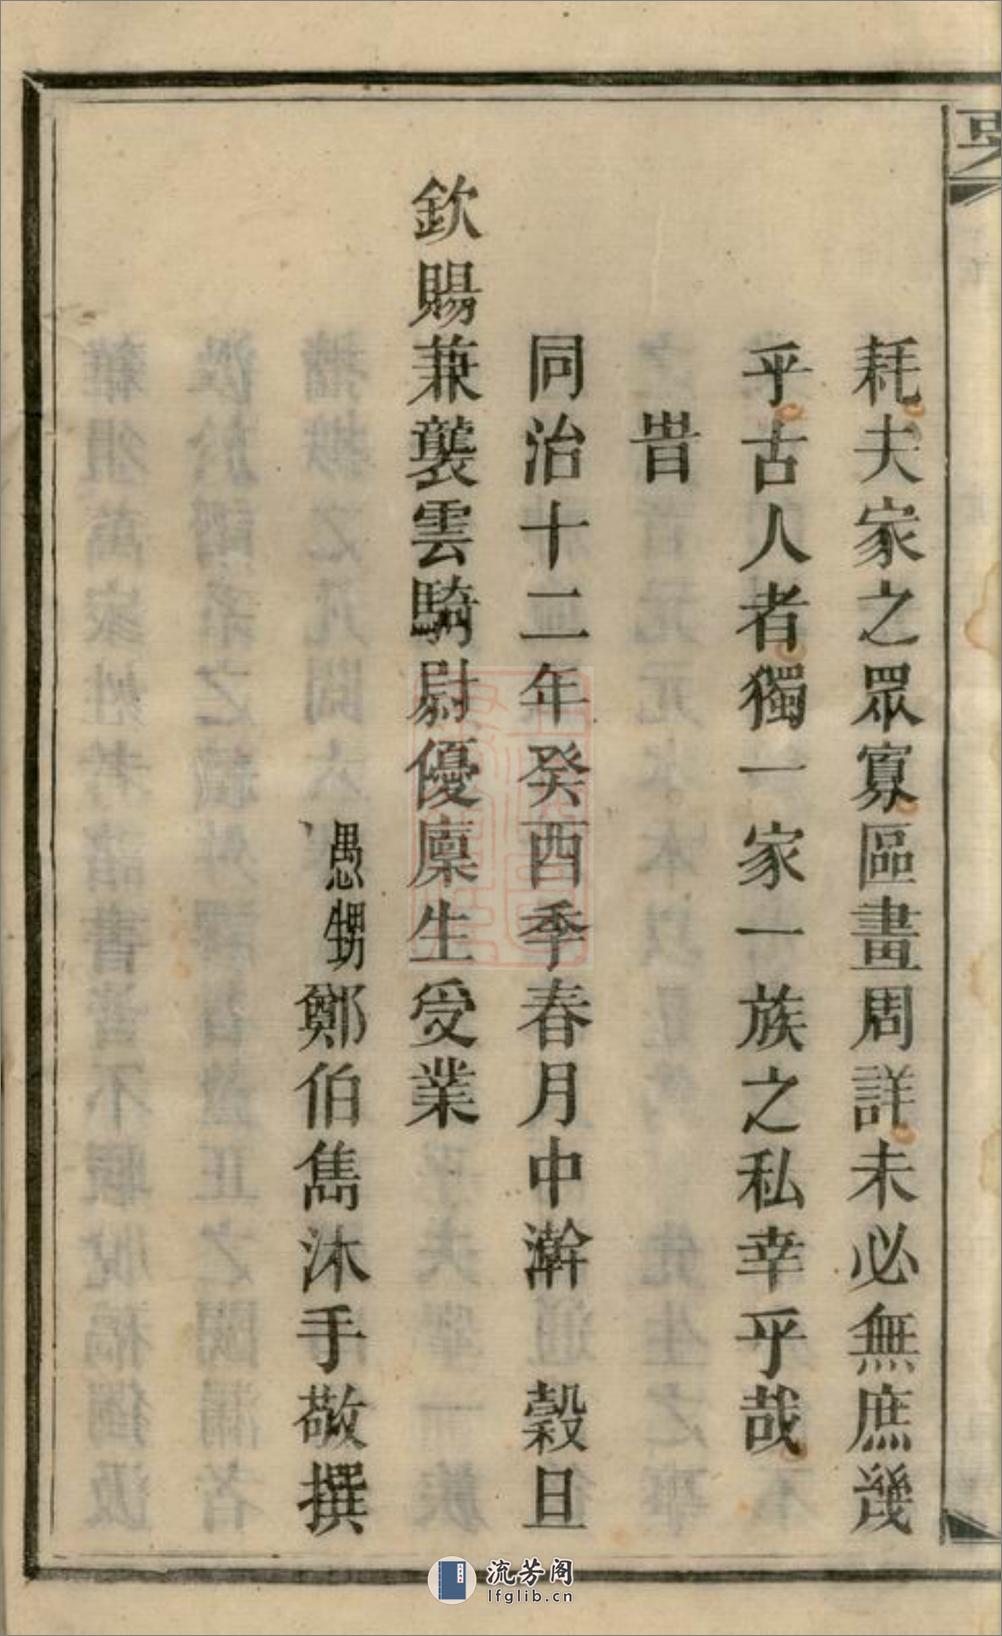 耗夫家之眾寡區畫周詳未必無庶幾
乎古人者獨一家一族之私幸乎哉
旹
同治十二年癸酉季春月中澣 榖旦
欽賜兼襲雲騎尉優廩生受業
愚甥鄭伯雋沐手敬撰
流芳阁
lfglib.cn